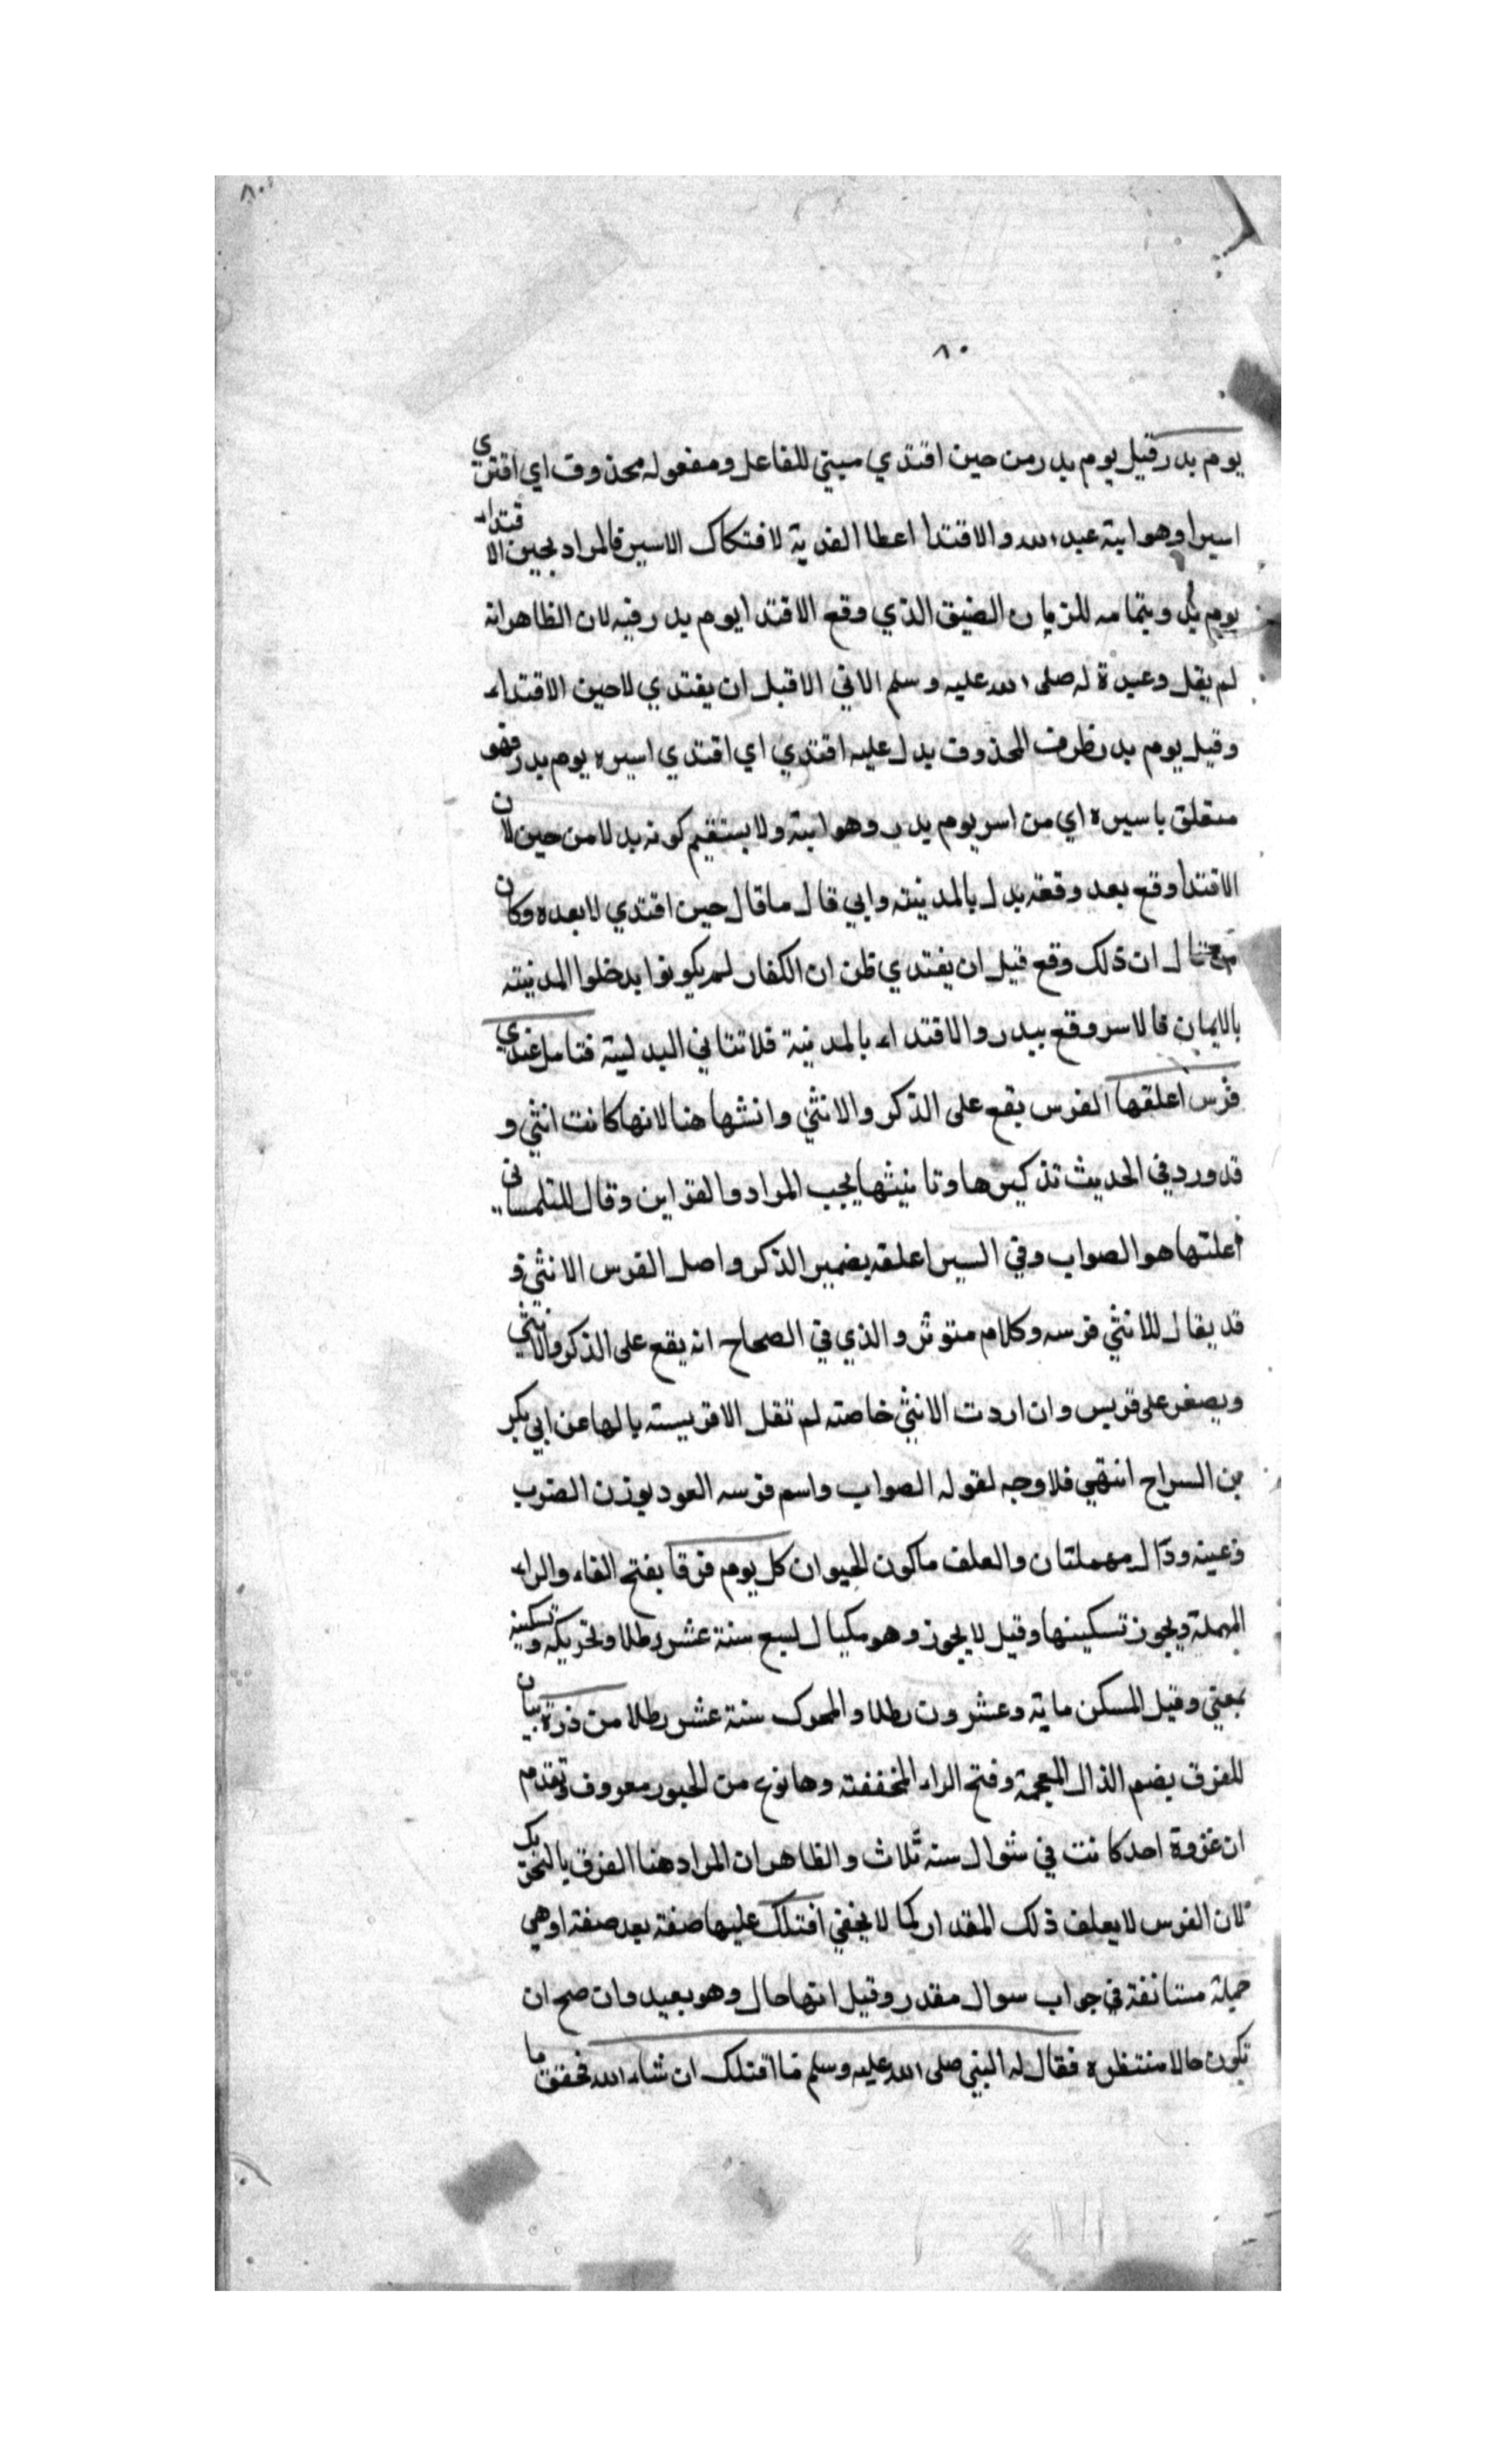 ٨٠
٨٠
يوم بدر قيل يوم بدر من حين افتدي مبني للفاعل ومفعوله محذوف اي افتدي
اسيرا وهو ابنة عبد الله والافتدا اعطا الفدية لافتكاك الاسير فالمراد بحين الافتداء
يوم بدر وبتمامه للزمان الضيق الذي وقع الافتدا يوم بدر فيه لان الظاهر انه
لم يقل وعيدة له صلى الله عليه وسلم الاتي الا قبل ان يفتدي لا حين الافتداء
وقيل يوم بدر ظرف لمحذوف يدل عليه افتدي اي افتدي اسيره يوم بدر فهو
متعلق باسيره اي من اسر يوم بدر وهو ابنة ولا يستقيم كونه بدلا من حين لان
الافتدا وقع بعد وقعة بدر بالمدينة وابي قال ما قال حين افتدي لا بعده وكان
ان ذلك وقع قبل ان يفتدي ظن ان الكفار لم يكونوا يدخلوا المدينة
بالايمان فالاسر وقع ببدر والافتداء بالمدينة فلا تنافي البدلية فتامل عندي
فرس اعلقها الفرس يقع على الذكر والانثي وانثها هنا لانها كانت انثي و
قد ورد في الحديث تذكيرها وتانيثها بحب المراد والقراين وقال للتلمساني
اعلتها هو الصواب وفي السير اعلقه بضمير الذكر واصل الفرس الانثي و
قد يقال للانثي فرسه وكلام متوثر والذي في الصحاح انه يقع على الذكر والانثي
ويصغر على فريس وان اردت الانثي خاصته لم تقل الا فريسته بالها عن ابي بكر
بن السراج انتهي فلا وجه لقوله الصواب واسم فرسه العود بوزن الضرب
وعينه ودال مهملتان والعلف ماكول الحيوان كل يوم فرقا بفتح الفاء والراء
المهملة ويجوز تسكينها وقيل لا يجوز وهو مكيال لسبع ستة عشر رطلا وتحريكه وتسكينه
بمعني وقيل المسكن ماية وعشرون رطلا والمحرك ستة عشر رطلا من ذرة بيان
للفرق بضم الذال المعجمة وفتح الراء المخففته وها نوع من الحبوب معروف وتقدم
ان غزوة احد كانت في شوال سنه ثلاث والظاهر ان المراد هنا الفرق بالتحريك
لان الفرس لا يعلف ذلك المقدار كما لا يخفي اقتلك عليها صفة بعد صفة او هي
جملة مستانفة في جواب سوال مقدر وقيل انها حال وهو بعيد وان صح ان
تكون حالا منتظره فقال له النبي صلى الله عليه وسلم انا اقتلك ان شاء الله فحقق ما